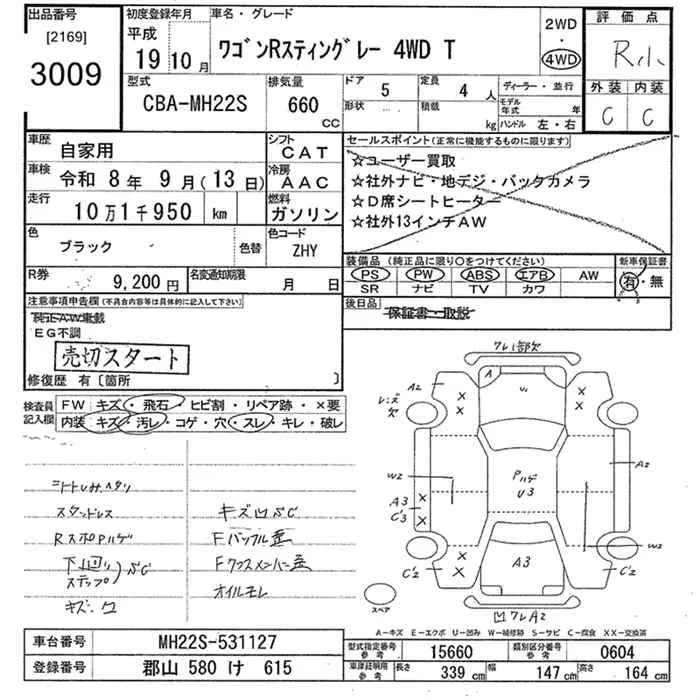 出品番号
[2169]
3009
初度登録年月
平成
19年10月
車名・グレード
ワゴンRスティングレー 4WD T
2WD
・
4WD
評価点
R小
外装 内装
C C
型式
CBA-MH22S
排気量
660
CC
ドア
5
定員
4 人
ディーラー・並行
形状
積載
kg
モデル年式
年
ハンドル 左・右
車歴
自家用
シフト
CAT
車検
令和 8年 9月(13日)
冷房
AAC
走行
10万1千950 km
燃料
ガソリン
色
ブラック
色替
色コード
ZHY
R券
9,200円
名変通知期限
月 日
セールスポイント(正常に機能するものに限ります)
☆ユーザー買取
☆社外ナビ・地デジ・バックカメラ
☆D席シートヒーター
☆社外13インチAW
装備品 (純正品に限り○をつけてください)
PS PW ABS エアB AW
SR ナビ TV カワ
新車保証書
有・無
後日品
保証書・取説
注意事項申告欄(不具合内容等は具体的に記入して下さい)
EG不調
売切スタート
修復歴 有〔箇所 〕
検査員記入欄
FW キズ・飛石・ヒビ割・リペア跡・×要
内装 キズ・汚レ・コゲ・穴・スレ・キレ・破レ
スタッドレス
RスポPハゲ
下回り
ステップ
SC
キズ・凹
キズ凹SC
Fバッフル歪
Fクロスメンバー歪
オイルモレ
フレ1部欠
レンズ欠
A2
A
U1
W2
A3
C'3
Pハゲ
U3
A2
W2
C'2
A3
C'2
凹フレA2
スペア
A-キズ E-エクボ U-凹み W-補修跡 S-サビ C-腐食 XX-交換済
車台番号
MH22S-531127
登録番号
郡山 580 け 615
型式指定番号
参考
15660
類別区分番号
参考
0604
車庫証明用
参考
長さ
339 cm
幅
147 cm
高さ
164 cm